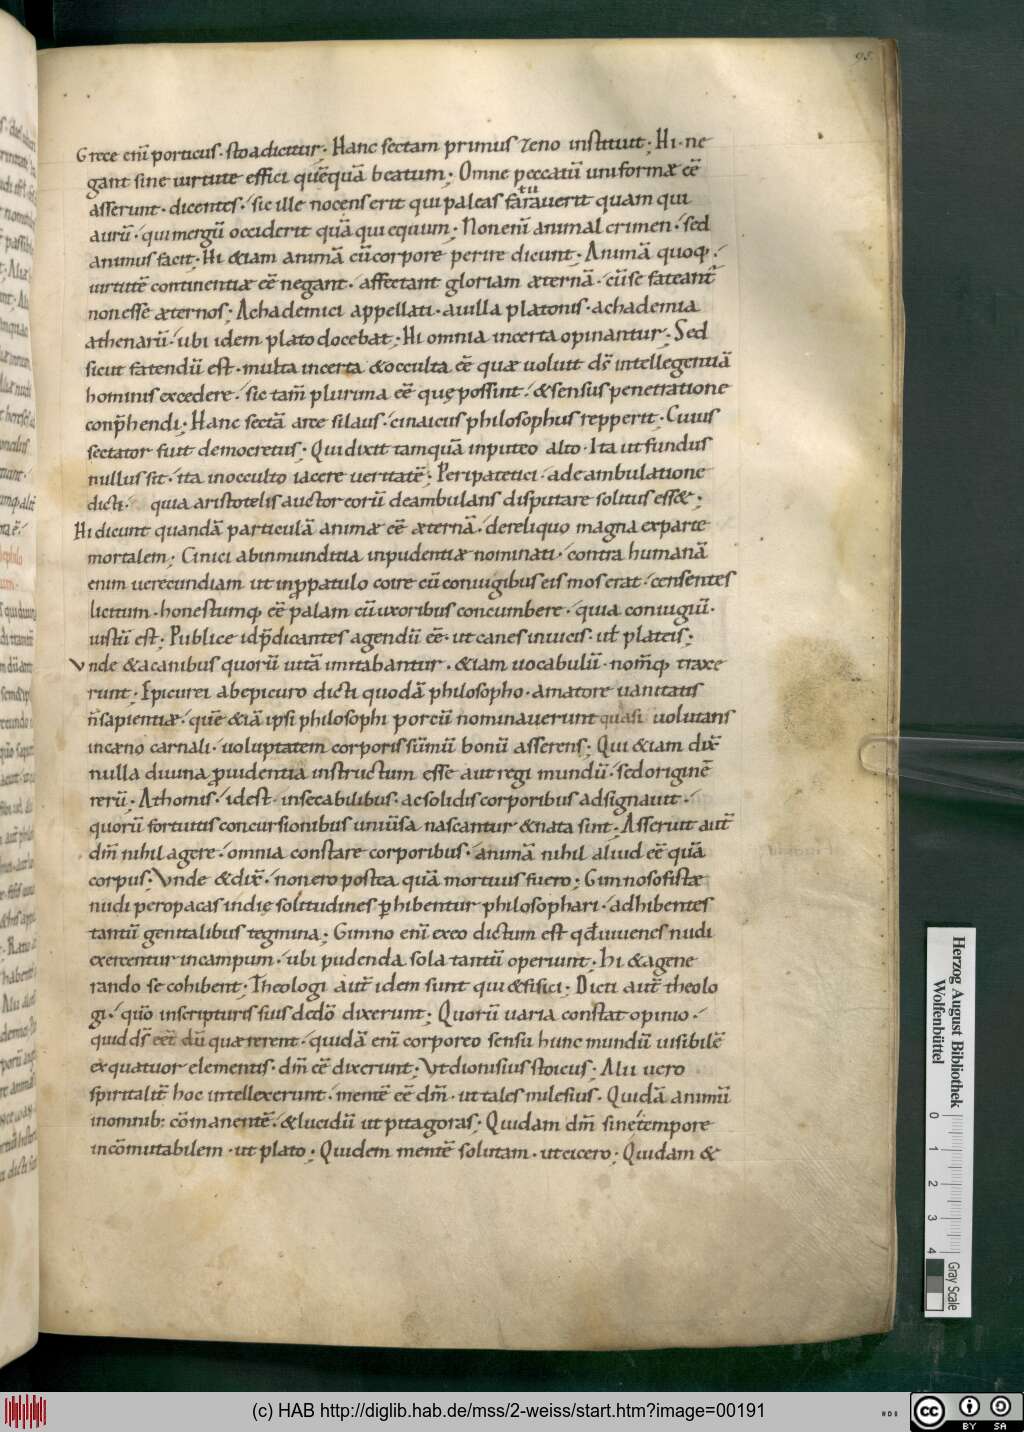 95
Grece eni̅ porticus · stoa dicitur ; Hanc sectam primus zeno instituit ; Hi · ne
gant sine uirtute effici que̅qua̅ beatum ; Omne peccatu̅ uniformæ ee̅
asserunt · dicentes · sic ille nocens erit qui paleas faratuuerit quam qui
auru̅ · qui mergu̅ occiderit qua̅ qui equum ; Non eni̅ animal crimen · sed
animus facit ; Hi &iam anima̅ cu̅ corpore perire dicunt ; Anima̅ quoq; ·
uirtute̅ continentiæ ee̅ negant · affectant gloriam æterna̅ · cu̅ se fateant̅
non esse æternos ; Achademici appellati · a uilla platonis · achademia
athenaru̅ · ubi idem plato docebat ; Hi omnia incerta opinantur ; Sed
sicut fatendu̅ est · multa incerta & occulta ee̅ quæ uoluit ds̅ intellegentia̅
hominis excedere · sic tam̅ plurima ee̅ quę possint · & sensus penetratione
conp̅hendi ; Hanc secta̅ arce silaus · cinaicus philosophus repperit ; Cuius
sectator fuit democretus ; Qui dixit tamqua̅ in puteo alto · Ita ut fundus
nullus sit · ita in occulto iacere ueritate̅ ; Peripatetici · a deambulatione
dicti · quia aristotelis auctor eoru̅ deambulans disputare solitus ess& ;
Hi dicunt quanda̅ particula̅ animæ ee̅ æterna̅ · de reliquo magna ex parte
mortalem ; Cinici ab inmunditia inpudentiæ nominati · contra humana̅
enim uerecundiam ut in p̱patulo coire cu̅ coniugibus eis mos erat · censentes
licitum · honestumq; ee̅ palam cu̅ uxoribus concumbere · quia coniugiu̅ ·
iustu̅ est ; Publice id p̅dicantes agendu̅ ee̅ · ut canes in uicis · ut̅ plateis ;
Vnde & a canibus quoru̅ uita̅ imitabantur · &iam uocabulu̅ · nom̅q; traxe
runt ; Epicurei ab epicuro dicti quoda̅ philosopho · amatore uanitatis
n̅ sapientiæ · que̅ &ia̅ ipsi philosophi porcu̅ nominauerunt quasi uolutans
in cæno carnali · uoluptatem corporis su̅mu̅ bonu̅ asserens ; Qui &iam dix̅
nulla diuina p̱uidentia instructum esse aut regi mundu̅ · sed origine̅
reru̅ ; Athomis · id est · insecabilibus · ac solidis corporibus adsignauit ·
quoru̅ fortuitis concursionibus uniu̅sa nascantur & nata sint · Asserunt aut̅
dm̅ nihil agere · omnia constare corporibus · anima̅ nihil aliud ee̅ qua̅
corpus ; Vnde & dix̅ · non ero postea qua̅ mortuus fuero ; Gimnosofistæ
nudi per opacas indię solitudines p̱hibentur philosophari · adhibentes
tantu̅ genitalibus tegmina ; Gimno eni̅ ex eo dictum est qd̅ iuuenes nudi
exercentur in campum · ubi pudenda sola tantu̅ operiunt ; hi & a gene
rando se cohibent ; Theologi aut̅ idem sunt qui & fisici ; Dicti aut̅ theolo
gi · quo̅ in scripturis suis de do̅ dixerunt ; Quoru̅ uaria constat opinio ·
quid ds̅ ee̅t du̅ quæ rerent · quida̅ eni̅ corporeo sensu hunc mundu̅ uisibile̅
ex quatuor elementis · dm̅ ee̅ dixerunt ; Vt dionisius stoicus ; Alii uero
spiritalit̅ hoc intellexerunt · mente̅ ee̅ dm̅ · ut tales milesius · Quida̅ animu̅
in omnib: co̅manente̅ · & lucidu̅ ut pitagoras ; Quidam dm̅ sine tempore
inco̅mutabilem · ut plato ; Quidem mente̅ solutam · ut cicero ; Quidam &
Herzog August Bibliothek
Wolfenbüttel
0 1 2 3 4
Gray Scale
(c) HAB http://diglib.hab.de/mss/2-weiss/start.htm?image=00191
cc BY SA